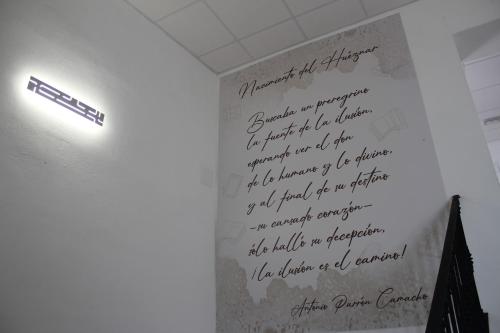 Nacimiento del Huéznar
Buscaba un peregrino
la fuente de la ilusión,
esperando ver el don
de lo humano y lo divino,
y al final de su destino
-su cansado corazón-
sólo halló su decepción,
¡la ilusión es el camino!
Antonio Parrón Camacho